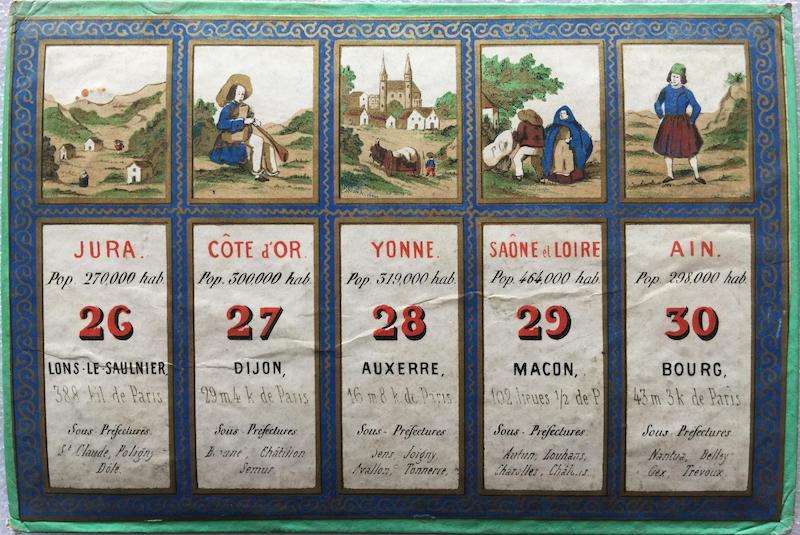 JURA.
Pop. 270,000 hab.
26
LONS-LE-SAULNIER
388 kil de Paris
Sous-Préfectures.
St Claude, Poligny
Dôle.
CÔTE d'OR.
Pop. 300,000 hab.
27
DIJON,
29 m 4 k de Paris
Sous-Préfectures
Châtillon
Semur
YONNE.
Pop. 319,000 hab.
28
AUXERRE,
16 m 8 k de Paris
Sous-Préfectures.
Sens, Joigny,
Avallon, Tonnerre,
SAÔNE et LOIRE
Pop. 464,000 hab.
29
MACON,
102 lieues 1/2 de P
Sous-Préfectures.
Autun, Louhans,
Charolles, Châlons.
AIN.
Pop. 298,000 hab.
30
BOURG,
43 m 3 k de Paris
Sous-Préfectures.
Nantua, Belley
Gex, Trevoux.